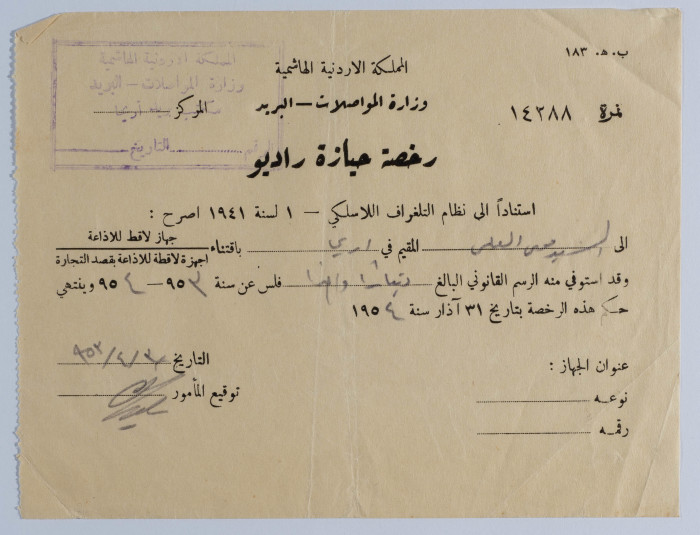 ب. ه. ١٨٣
المملكة الاردنية الهاشمية
وزارة المواصلات — البريد
نمرة ١٤٢٨٨
المملكة الاردنية الهاشمية
وزارة المواصلات — البريد
المركز اريحا
الرقم التاريخ
رخصة حيازة راديو
استناداً الى نظام التلغراف اللاسلكي — ١ لسنة ١٩٤١ اصرح :
الى السيد موسى العلمي المقيم في اريحا باقتناء جهاز لاقط للاذاعة
اجهزة لاقطة للاذاعة بقصد التجارة
وقد استوفي منه الرسم القانوني البالغ ديناراً واحداً فلس عن سنة ٩٥٣ — ٩٥٤ وينتهي
حكم هذه الرخصة بتاريخ ٣١ آذار سنة ١٩٥٤
عنوان الجهاز :
نوعه
رقمه
التاريخ ٩٥٣/٤/
توقيع المأمور